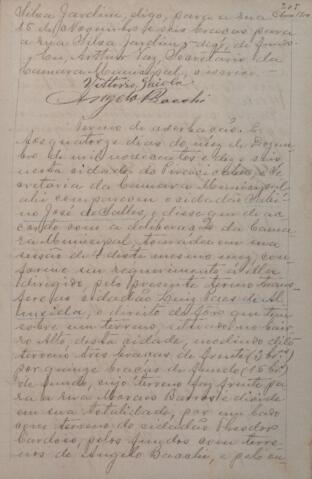 Silva Jardim, digo, para a rua
15 de Novembro e seis braças para
a rua Silva Jardim, digo, de fundo.
Eu, Arthur Vaz, Secretario da
Camara Municipal, o escrevi.
Angelo Bacchi
Termo de
Aos quatorze dias do mez de Dezem-
bro de mil novecentos e dez e seis
nesta cidade de Piracicaba, e Se-
cretaria da Camara Municipal
ahi compareceu o cidadão
no José de Salles, e disse que de ac-
cordo com a deliberação da Cama-
ra Municipal, tomada em sua
sessão de 4 deste mesmo mez, con-
forme seu requerimento á ella
dirigido, pelo presente termo trans-
fere ao cidadão Luiz Vaes de Al-
meida, o direito de fôro que tem
sobre um terreno, situado no bair-
ro Alto, desta cidade, medindo dito
terreno tres braças de frente (3 brs)
por quinze braças de fundo (15 brs)
de fundo, cujo terreno faz frente pa-
ra a rua Moraes Barros e divide
em sua totalidade, por um lado
com terreno do cidadão Theodor
Cardoso, pelos fundos com terre-
nos de Angelo Bacchi, e pelo ou-